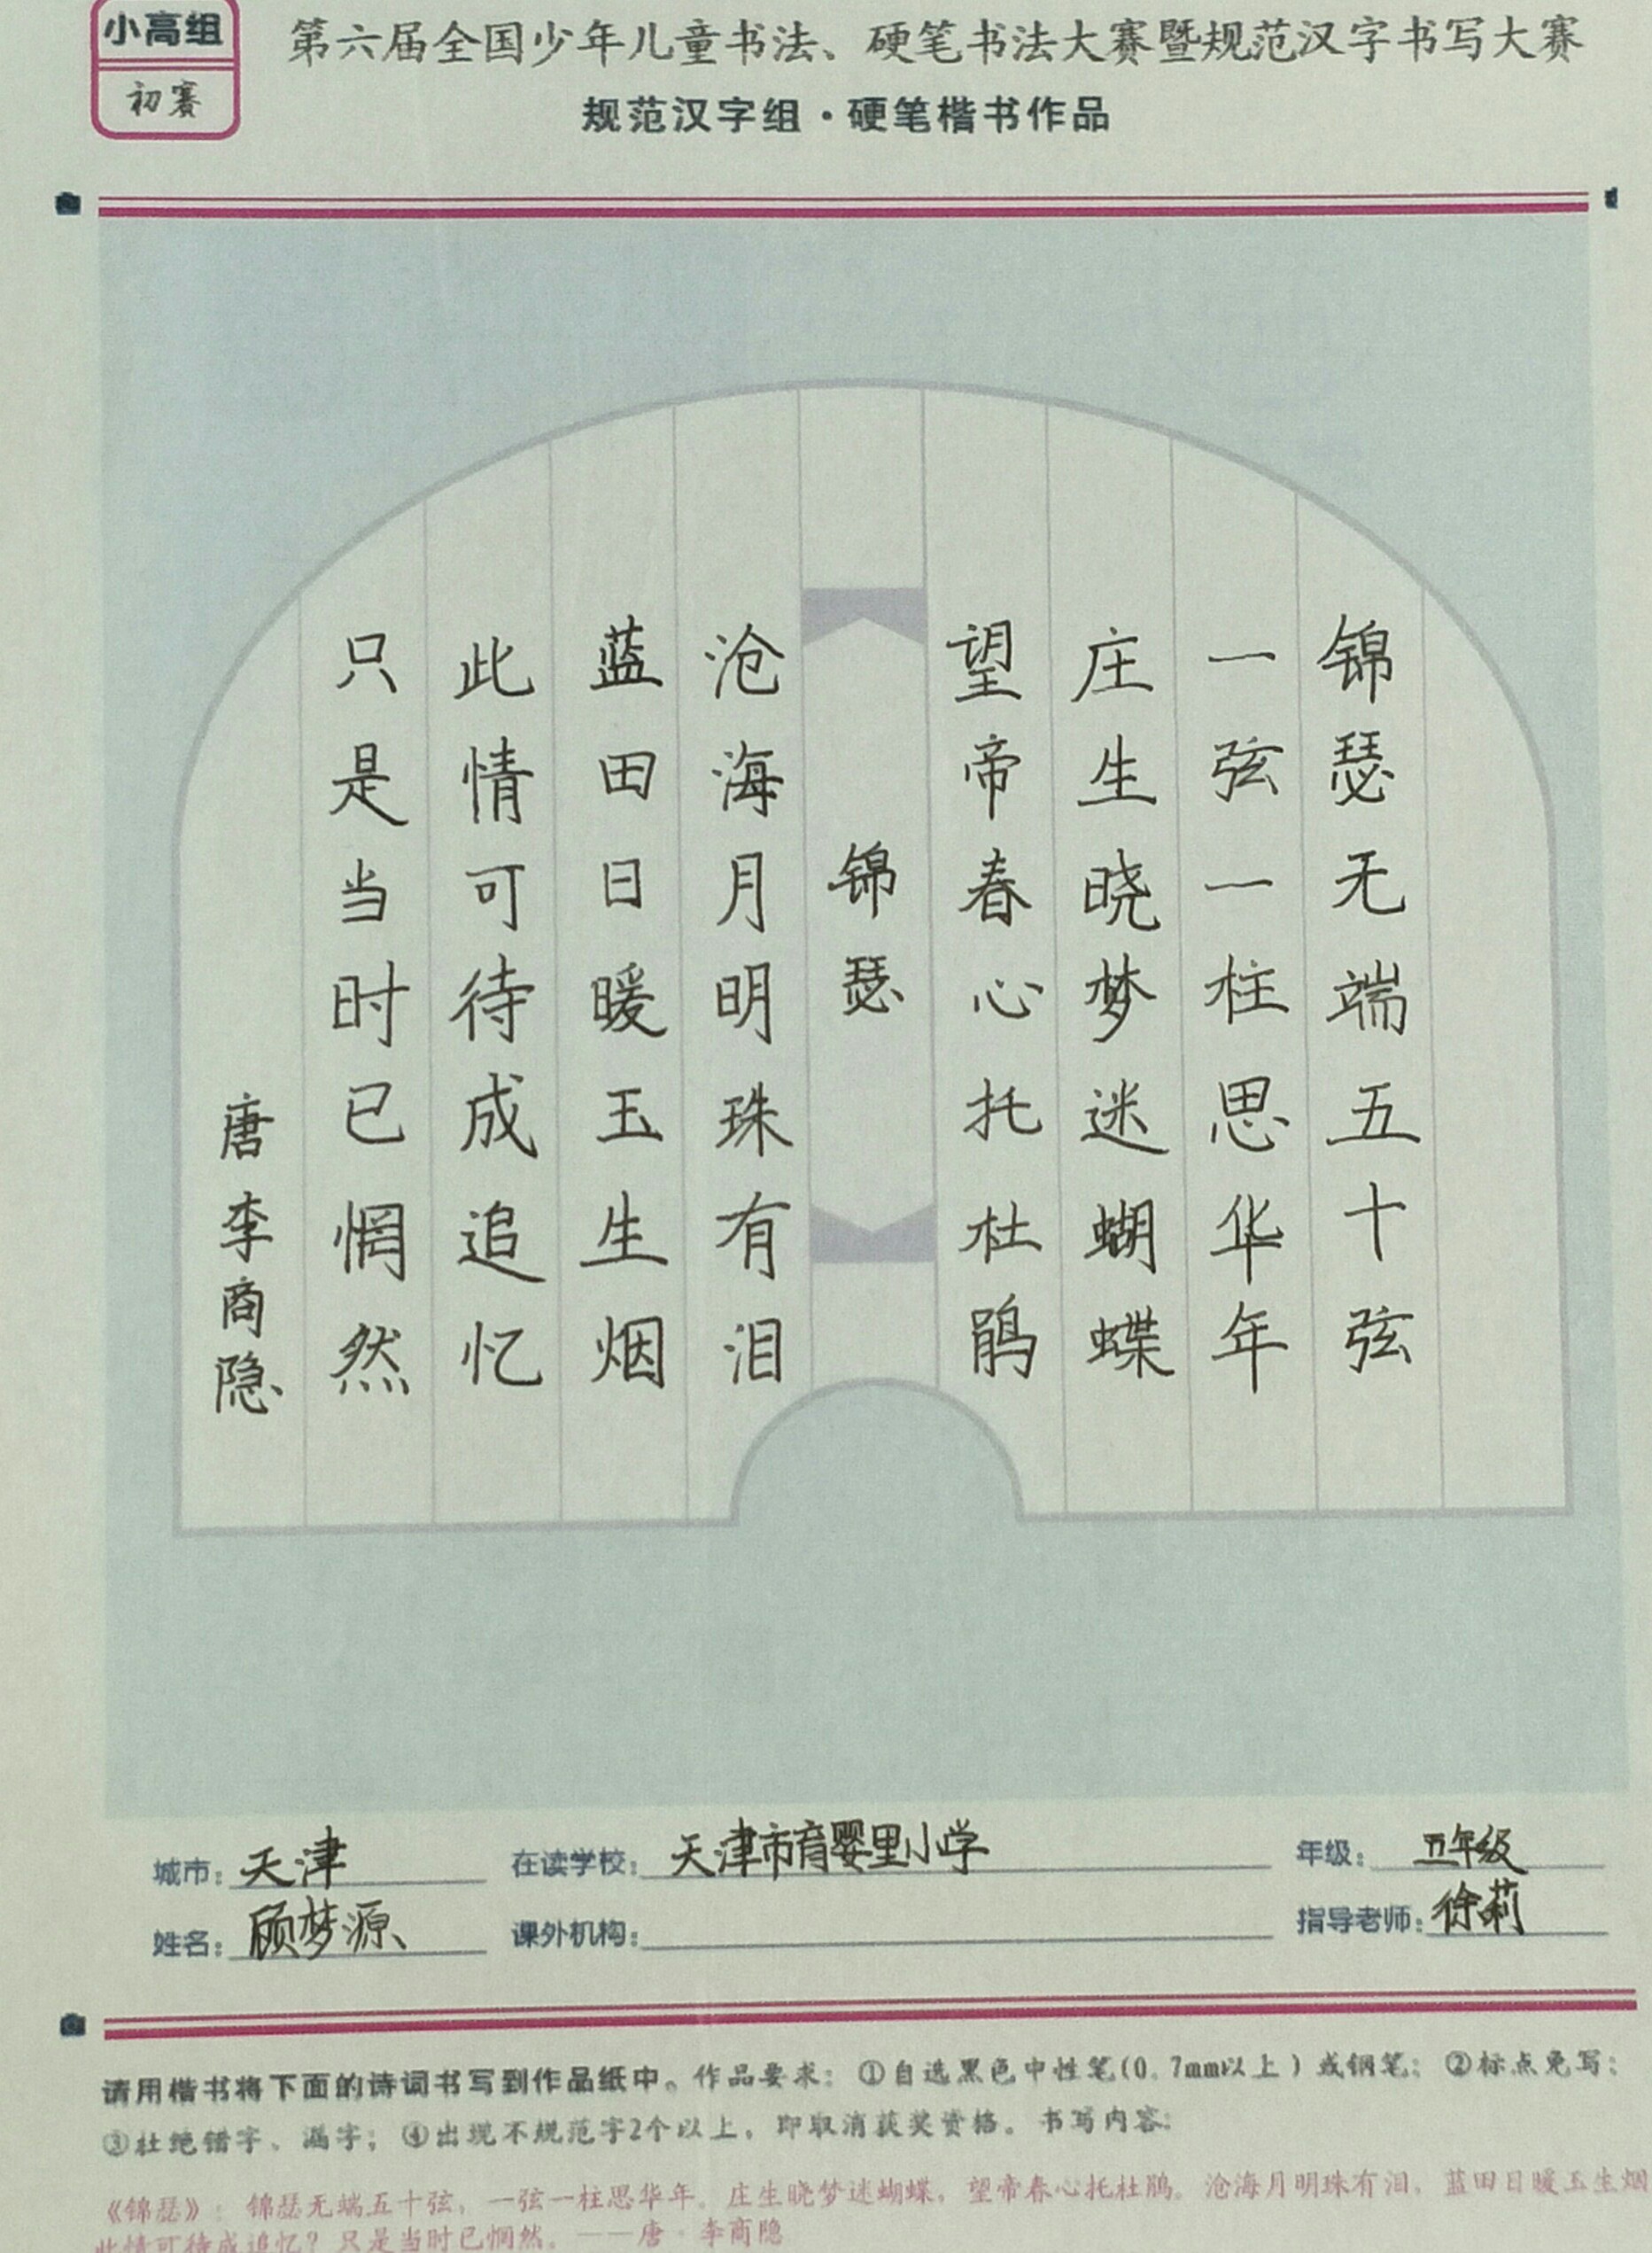 小高组
初赛
第六届全国少年儿童书法、硬笔书法大赛暨规范汉字书写大赛
规范汉字组·硬笔楷书作品
锦瑟无端五十弦
一弦一柱思华年
庄生晓梦迷蝴蝶
望帝春心托杜鹃
锦瑟
沧海月明珠有泪
蓝田日暖玉生烟
此情可待成追忆
只是当时已惘然
唐李商隐
城市：天津 在读学校：天津市育婴里小学 年级：五年级
姓名：顾梦源 课外机构： 指导老师：徐莉
请用楷书将下面的诗词书写到作品纸中。作品要求：①自选黑色中性笔(0.7mm以上)或钢笔；②标点免写；
③杜绝错字、漏字；④出现不规范字2个以上，即取消获奖资格。书写内容：
《锦瑟》：锦瑟无端五十弦，一弦一柱思华年。庄生晓梦迷蝴蝶，望帝春心托杜鹃。沧海月明珠有泪，蓝田日暖玉生烟
此情可待成追忆？只是当时已惘然。——唐·李商隐